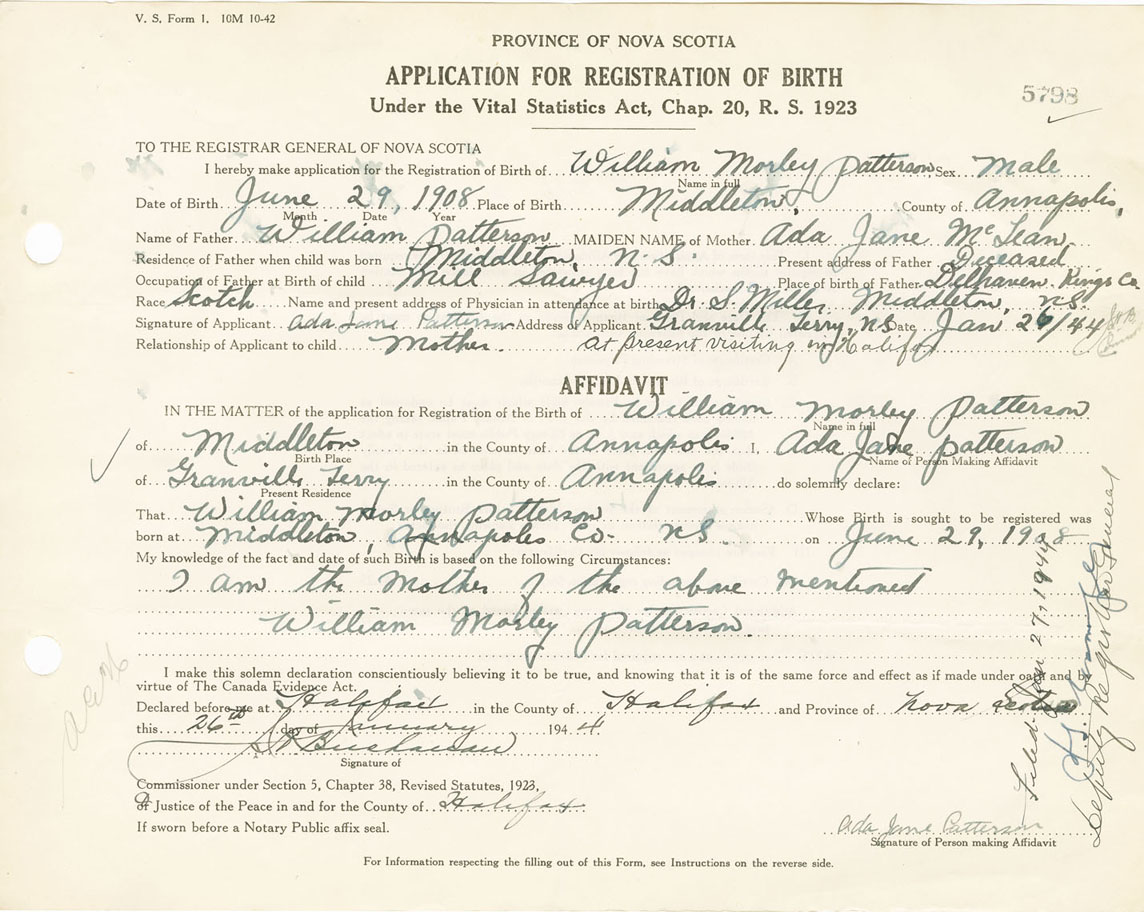 V. S. Form 1. 10M 10-42
PROVINCE OF NOVA SCOTIA
APPLICATION FOR REGISTRATION OF BIRTH
Under the Vital Statistics Act, Chap. 20, R. S. 1923
5798
TO THE REGISTRAR GENERAL OF NOVA SCOTIA
I hereby make application for the Registration of Birth of William Morley Patterson Sex Male
Name in full
Date of Birth June 29, 1908 Place of Birth Middleton, County of Annapolis,
Month Date Year
Name of Father William Patterson MAIDEN NAME of Mother Ada Jane McLean
Residence of Father when child was born Middleton, N.S. Present address of Father Deceased
Occupation of Father at Birth of child Mill Sawyer Place of birth of Father Delhaven, Kings Co
Race Scotch Name and present address of Physician in attendance at birth Dr. S. Miller, Middleton, NS.
Signature of Applicant Ada Jane Patterson Address of Applicant Granville Ferry, NS Date Jan 26/44
Relationship of Applicant to child Mother. at present visiting in Halifax
AFFIDAVIT
IN THE MATTER of the application for Registration of the Birth of William Morley Patterson
Name in full
of Middleton in the County of Annapolis I, Ada Jane Patterson
Birth Place Name of Person Making Affidavit
of Granville Ferry in the County of Annapolis do solemnly declare:
Present Residence
That William Morley Patterson Whose Birth is sought to be registered was
born at Middleton, Annapolis Co. NS on June 29, 1908
My knowledge of the fact and date of such Birth is based on the following Circumstances:
I am the Mother of the above mentioned
William Morley Patterson.
I make this solemn declaration conscientiously believing it to be true, and knowing that it is of the same force and effect as if made under oath and by
virtue of The Canada Evidence Act.
Declared before me at Halifax in the County of Halifax and Province of Nova Scotia
this 26th day of January 1944
Buchanan
Signature of
Commissioner under Section 5, Chapter 38, Revised Statutes, 1923,
or Justice of the Peace in and for the County of Halifax
If sworn before a Notary Public affix seal.
Ada Jane Patterson
Signature of Person making Affidavit
For Information respecting the filling out of this Form, see Instructions on the reverse side.
Filed Jan 27, 1944
Deputy Registrar General